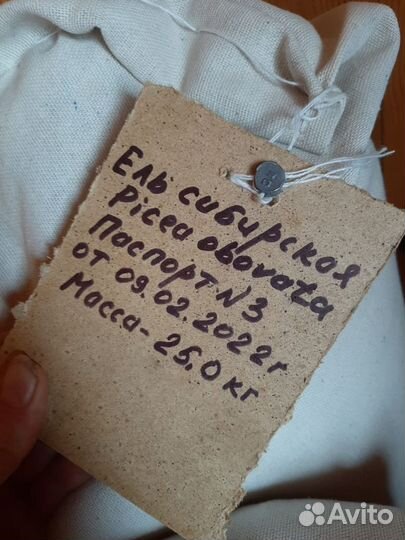 Ель сибирская
Picea obovata
Паспорт N 3
от 09.02.2022г
Масса - 25,0 кг
Avito